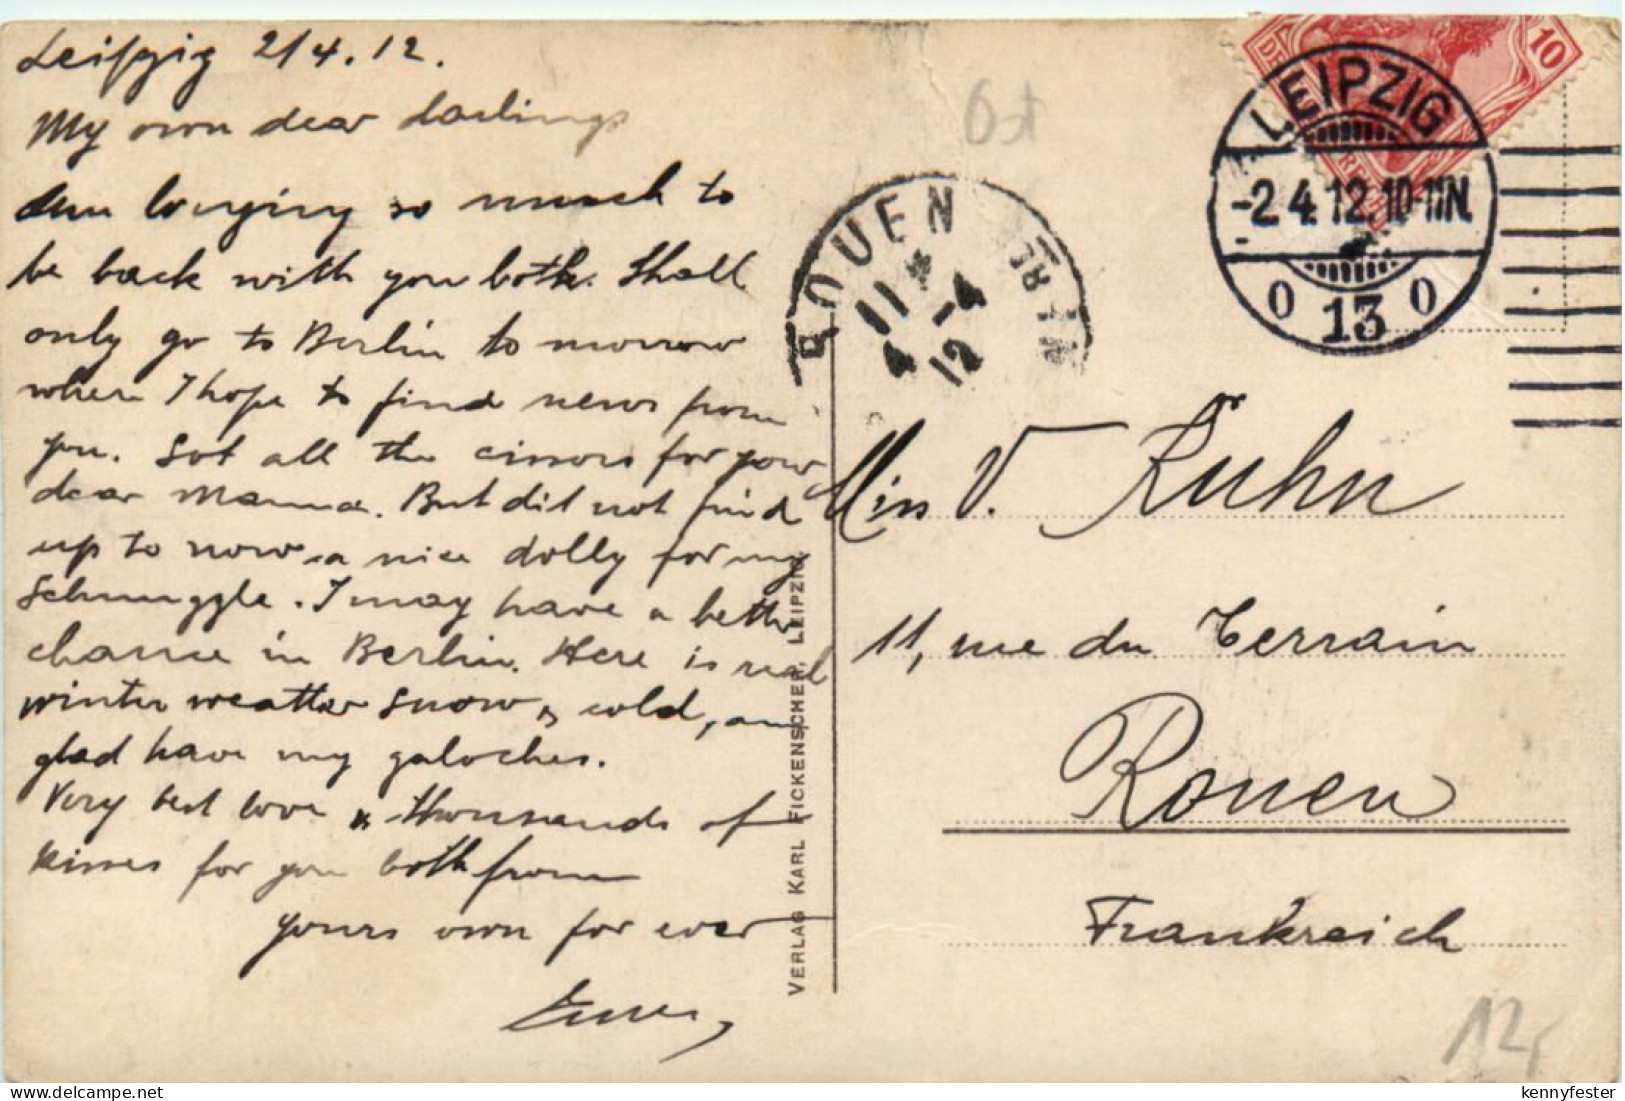 Leipzig 2/4.12.
My own dear darlings
Am longing so much to
be back with you both. Shall
only go to Berlin to morrow
where I hope to find news from
you. Got all the cissors for your
dear Mamma. But did not find
up to now a nice dolly for my
Schmuggle. I may have a better
chance in Berlin. Here is real
winter weather snow & cold, am
glad have my galoches.
Very best love & thousands of
kisses for you both from
yours own for ever
VERLAG KARL FICKENSCHER, LEIPZIG
Ost
ROUEN
11 * -4
4 12
DEUTSCHES REICH
10
LEIPZIG
-2.4.12.10-11N.
0 13 0
Miss V. Kuhn
11, rue du Terrain
Rouen
Frankreich
12,-
delcampe.net
kennyfester